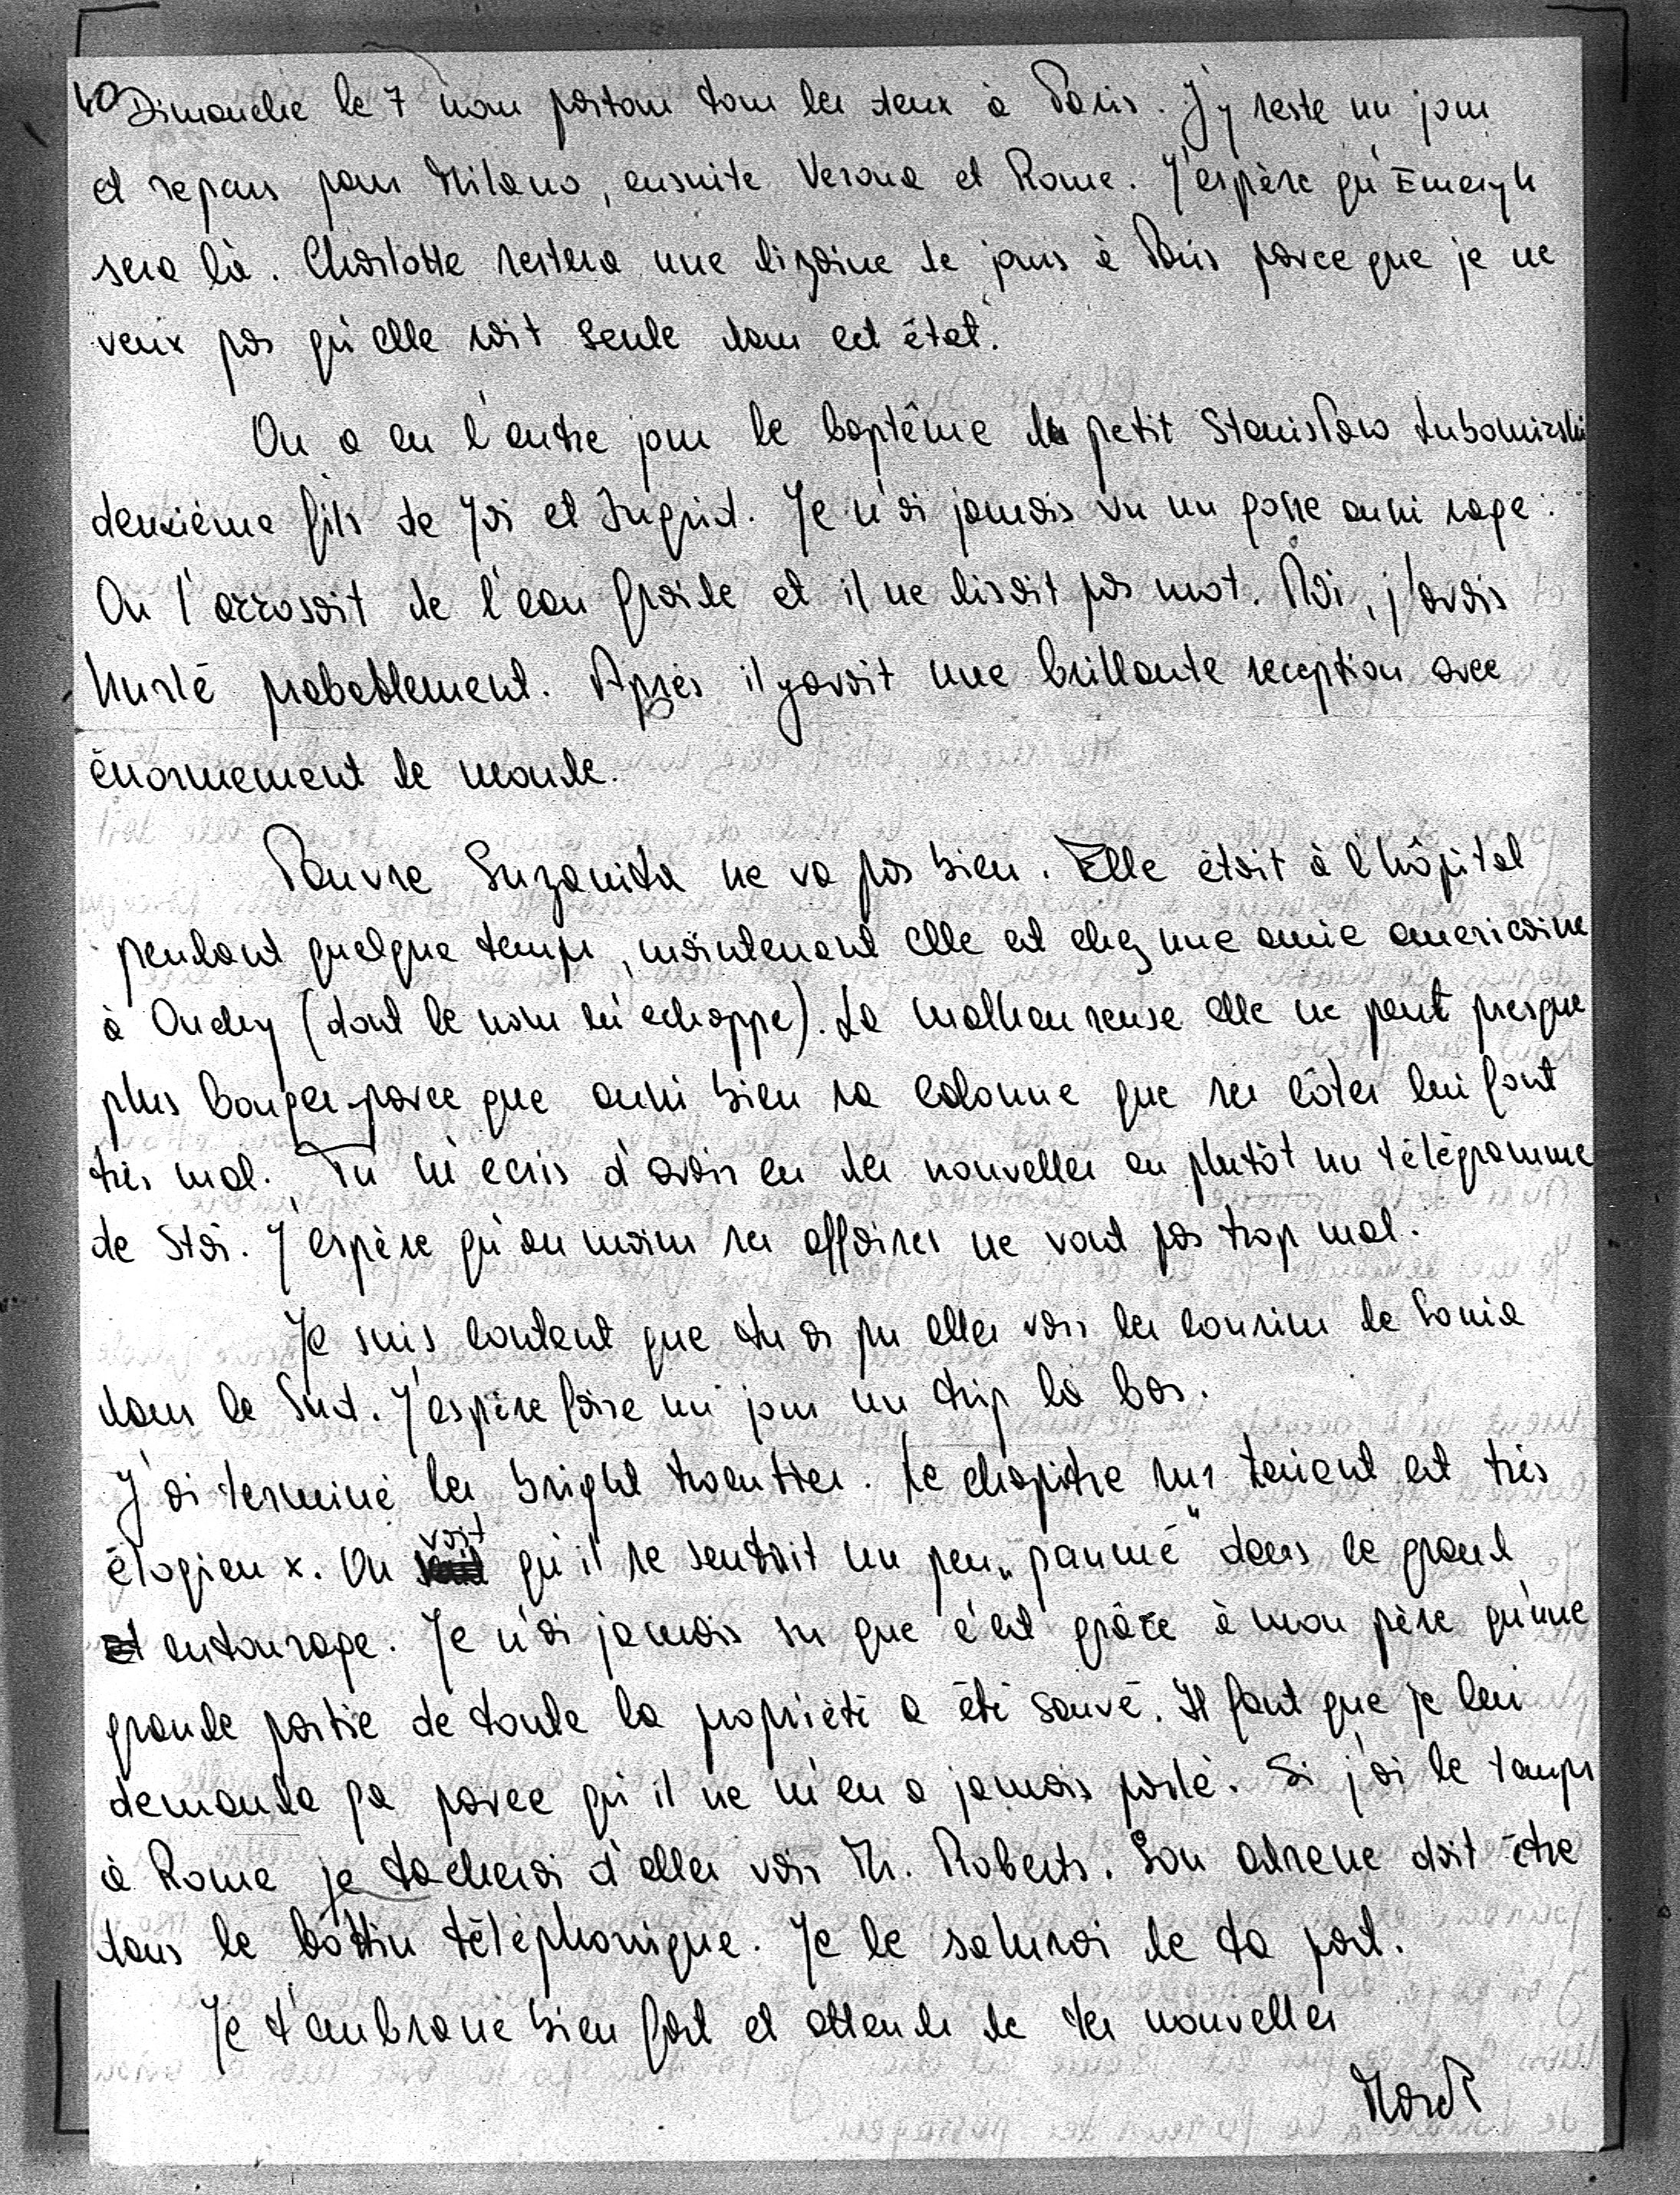 40 Dimanche le 7 nous partons tous les deux à Paris. J'y reste un jour
et repars pour Milano, ensuite Verona et Rome. J'espère qu'Emeryk
sera là. Charlotte restera une dizaine de jours à Paris parce que je ne
veux pas qu'elle soit seule dans cet état.
On a eu l'autre jour le baptême du petit Stanisław Lubomirski
deuxième fils de Jas et Ingrid. Je n'ai jamais vu un gosse aussi sage:
On l'arrosait de l'eau froide et il ne disait pas mot. Moi, j'avais
hurlé probablement. Après il y avait une brillante reception avec
énormement de monde.
Pauvre Suzanita ne va pas bien. Elle était à l'hôpital
pendant quelque temps, maintenant elle est chez une amie americaine
à Ouchy (dont le nom m'echappe). La malheureuse elle ne peut presque
plus bouger parce que aussi bien sa colonne que ses côtes lui font
très mal. Tu m'ecris d'avoir eu des nouvelles ou plutôt un télégramme
de Stas. J'espère qu'au moins ses affaires ne vont pas trop mal.
Je suis content que tu as pu aller voir les cousins de Sonia
dans le Sud. J'espère faire un jour un trip là bas.
J'ai terminé les bright twenties. Le chapitre sur est très
élogieux. On voit qu'il se sentait un peu „paumé" dans le grand
entourage. Je n'ai jamais su que c'est grâce à mon père qu'une
grande partie de toute la propriété a été sauvé. Il faut que je lui
demande ça parce qu'il ne m'en a jamais parlé. Si j'ai le temps
à Rome je tacherai d'aller voir Mr. Roberts. Son adresse doit être
dans le bottin téléphonique. Je le saluerai de ta part.
Je t'embrasse bien fort et attends de tes nouvelles